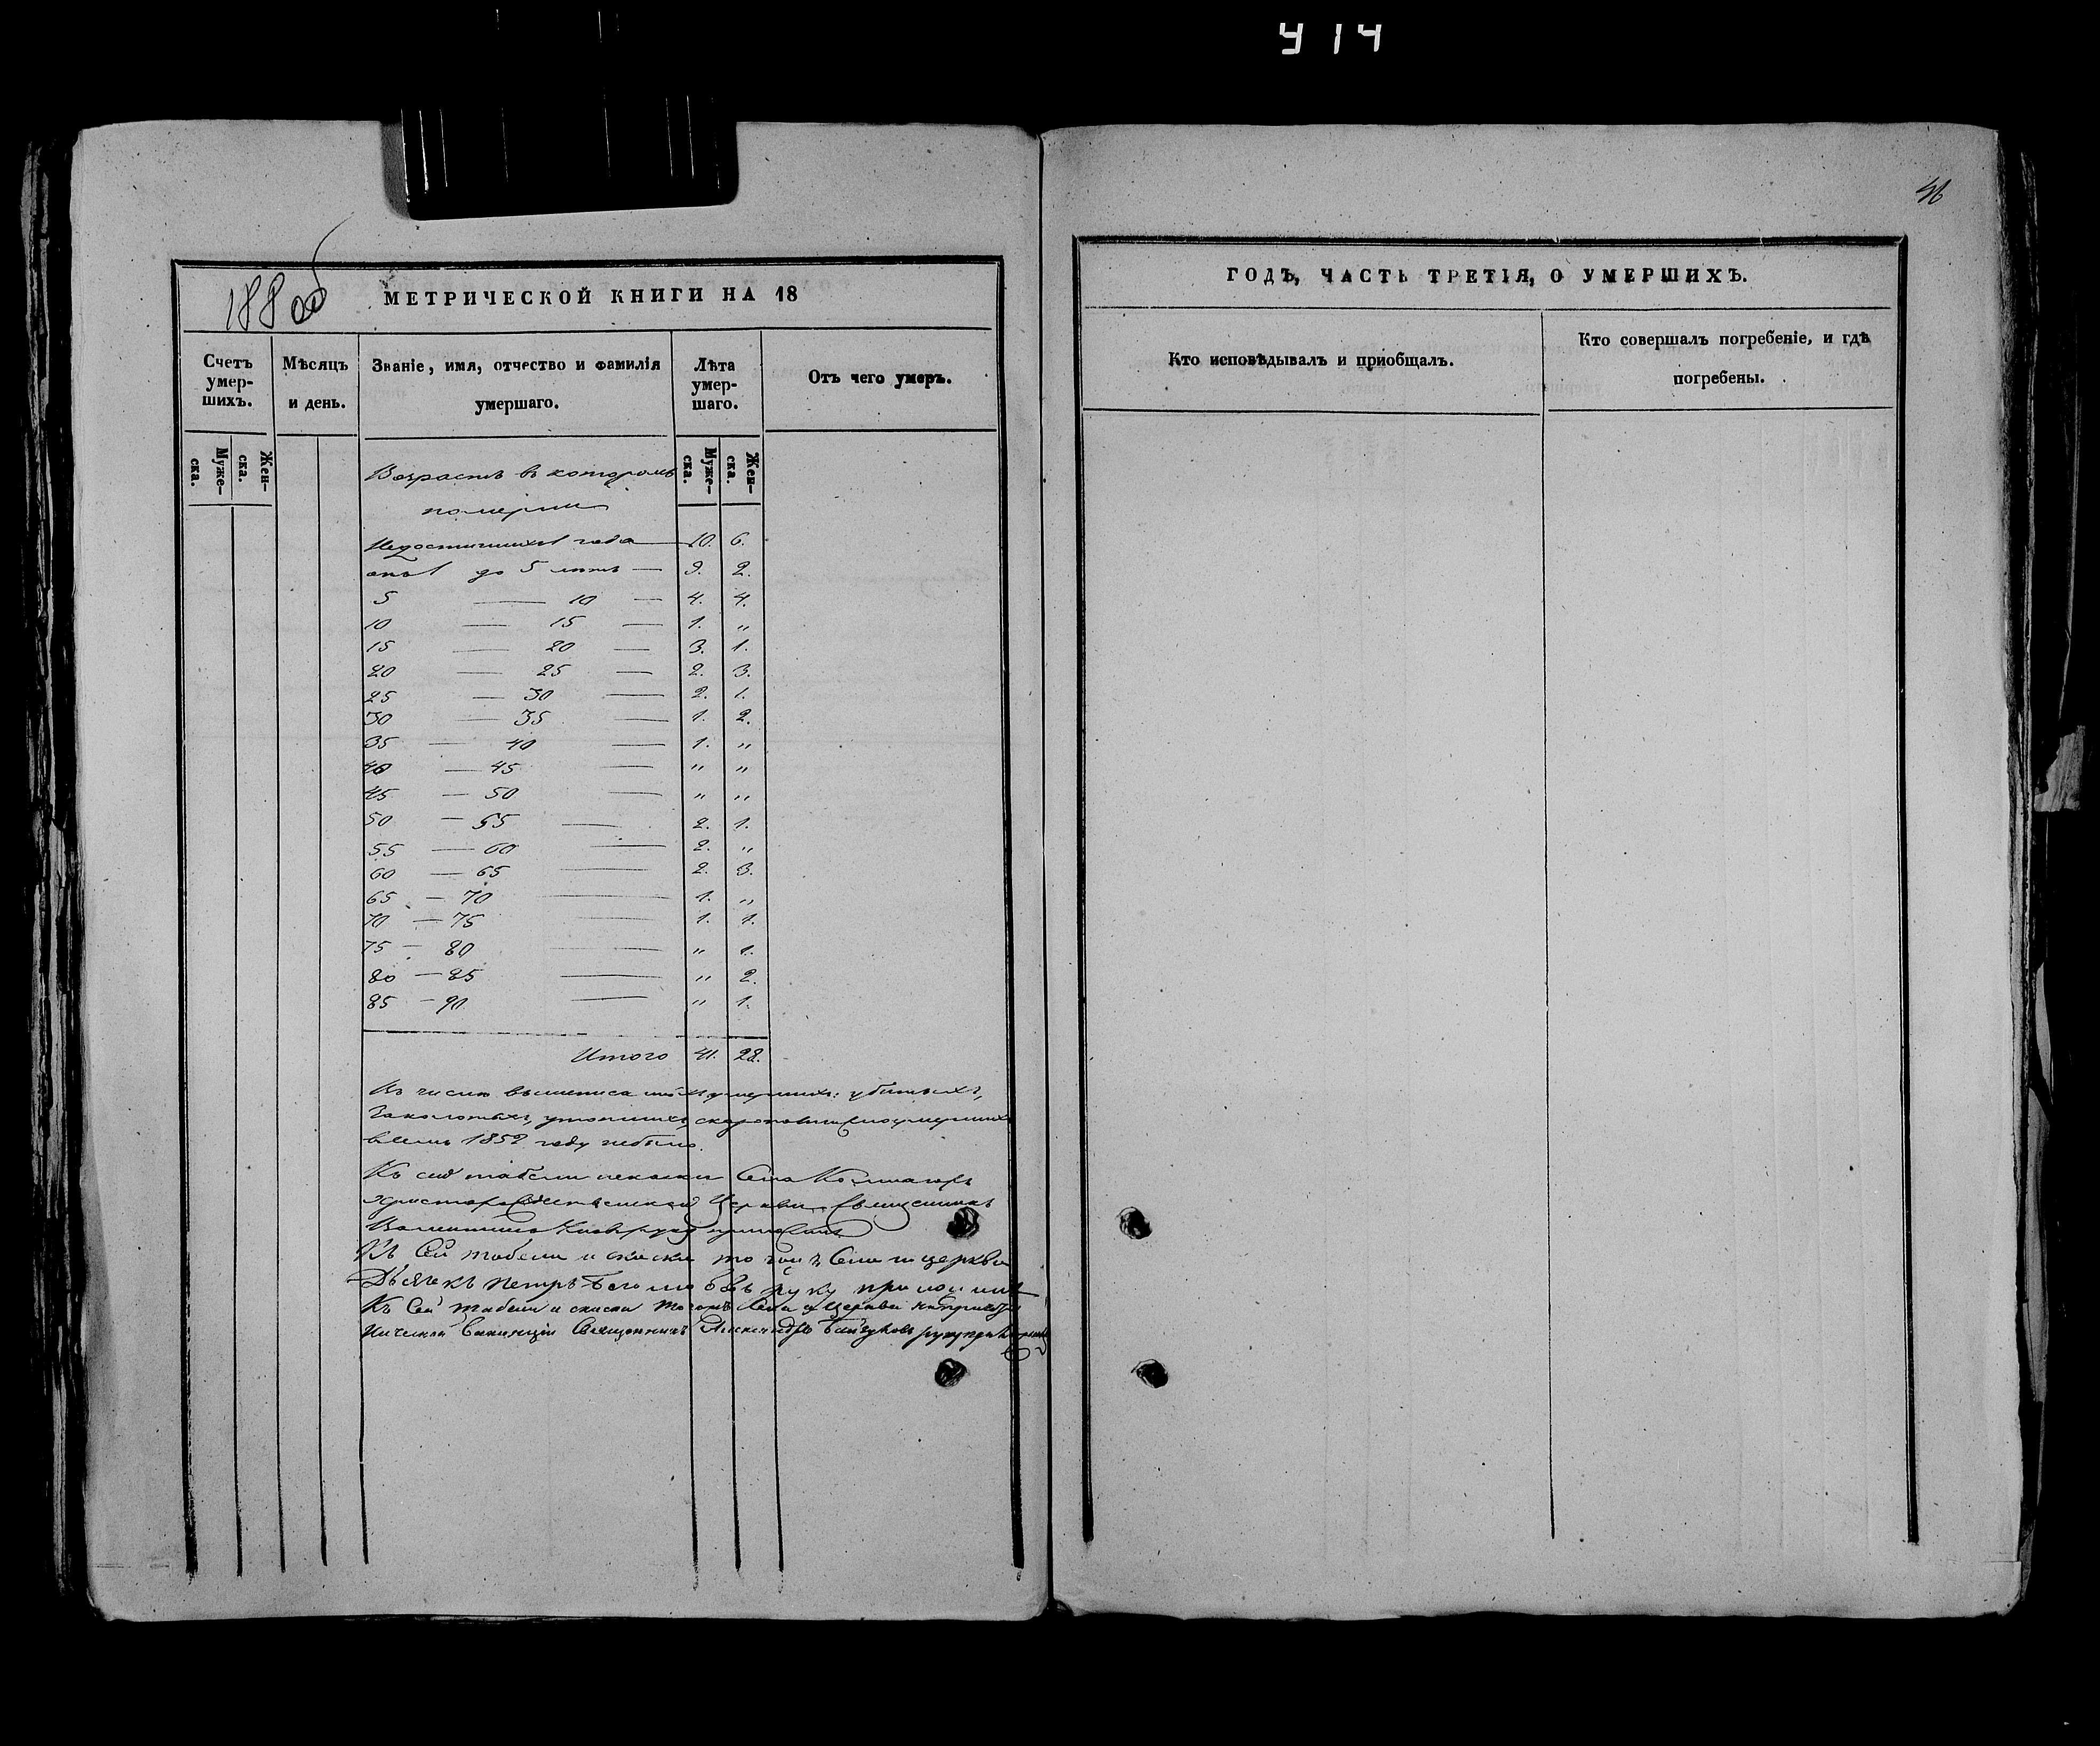 414
46
188 об
МЕТРИЧЕСКОЙ КНИГИ НА 18
Счетъ умер-шихъ.
Муже-ска.
Жен-ска.
Мѣсяцъ и день.
Званіе, имя, отчество и фамилія умершаго.
Лѣта умер-шаго.
Муже-ска.
Жен-ска.
Отъ чего умеръ.
Возрастъ въ которомъ
померли
Недостигших 1 года — 10. 6.
отъ 1 до 5 лѣтъ — 9. 2.
5 — 10 — 4. 4.
10 — 15 — 1. "
15 — 20 — 3. 1.
20 — 25 — 2. 3.
25 — 30 — 2. 1.
30 — 35 — 1. 2.
35 — 40 — 1. "
40 — 45 — " "
45 — 50 — " "
50 — 55 — 2. 1.
55 — 60 — 2. "
60 — 65 — 2. 3.
65 — 70 — 1. "
70 — 75 — 1. 1.
75 — 80 — " 1.
80 — 85 — " 2.
85 — 90 — " 1.
Итого 41. 28.
Въ числѣ вышеписанныхъ умершихъ: убитыхъ,
утопшихъ, скоропостижно умершихъ
въ семъ 1852 году небыло.
Къ сей табели Села
Христорождественской Церкви Священникъ
Къ Сей табели и того Села и церкви
Дьячекъ Петръ руку приложилъ
Къ Сей табели и того Села и Церкви
Священникъ Александръ руку приложилъ
ГОДЪ, ЧАСТЬ ТРЕТІЯ, О УМЕРШИХЪ.
Кто исповѣдывалъ и приобщалъ.
Кто совершалъ погребеніе, и гдѣ погребены.